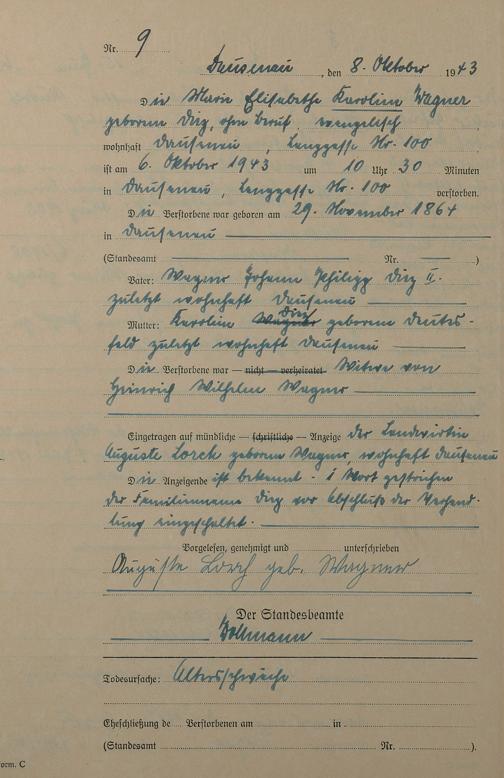 Nr. 9
Dausenau, den 8. Oktober 1943
Die Marie Elisabethe Karoline Wagner
geborene Dinz, ohne Beruf, evangelisch
wohnhaft Dausenau, Langgasse Nr. 100
ist am 6. Oktober 1943 um 10 Uhr 30 Minuten
in Dausenau, Langgasse Nr. 100 verstorben.
Die Verstorbene war geboren am 29. November 1864
in Dausenau
(Standesamt Nr. )
Vater: Wagner Johann Philipp Dinz II.
zuletzt wohnhaft Dausenau
Mutter: Karoline Wagner Dinz geborene Deutes-
feld zuletzt wohnhaft Dausenau
Die Verstorbene war — nicht — verheiratet Witwe von
Heinrich Wilhelm Wagner
Eingetragen auf mündliche — schriftliche — Anzeige der Landwirtin
Auguste Lorch geborene Wagner, wohnhaft Dausenau
Die Anzeigende ist bekannt. - 1 Wort gestrichen
der Familienname Dinz vor Abschluß der Verhand-
lung eingeschaltet.
Vorgelesen, genehmigt und unterschrieben
Auguste Lorch geb. Wagner
Der Standesbeamte
Bollmann
Todesursache: Altersschwäche
Eheschließung de Verstorbenen am in
(Standesamt Nr. ).
orm. C